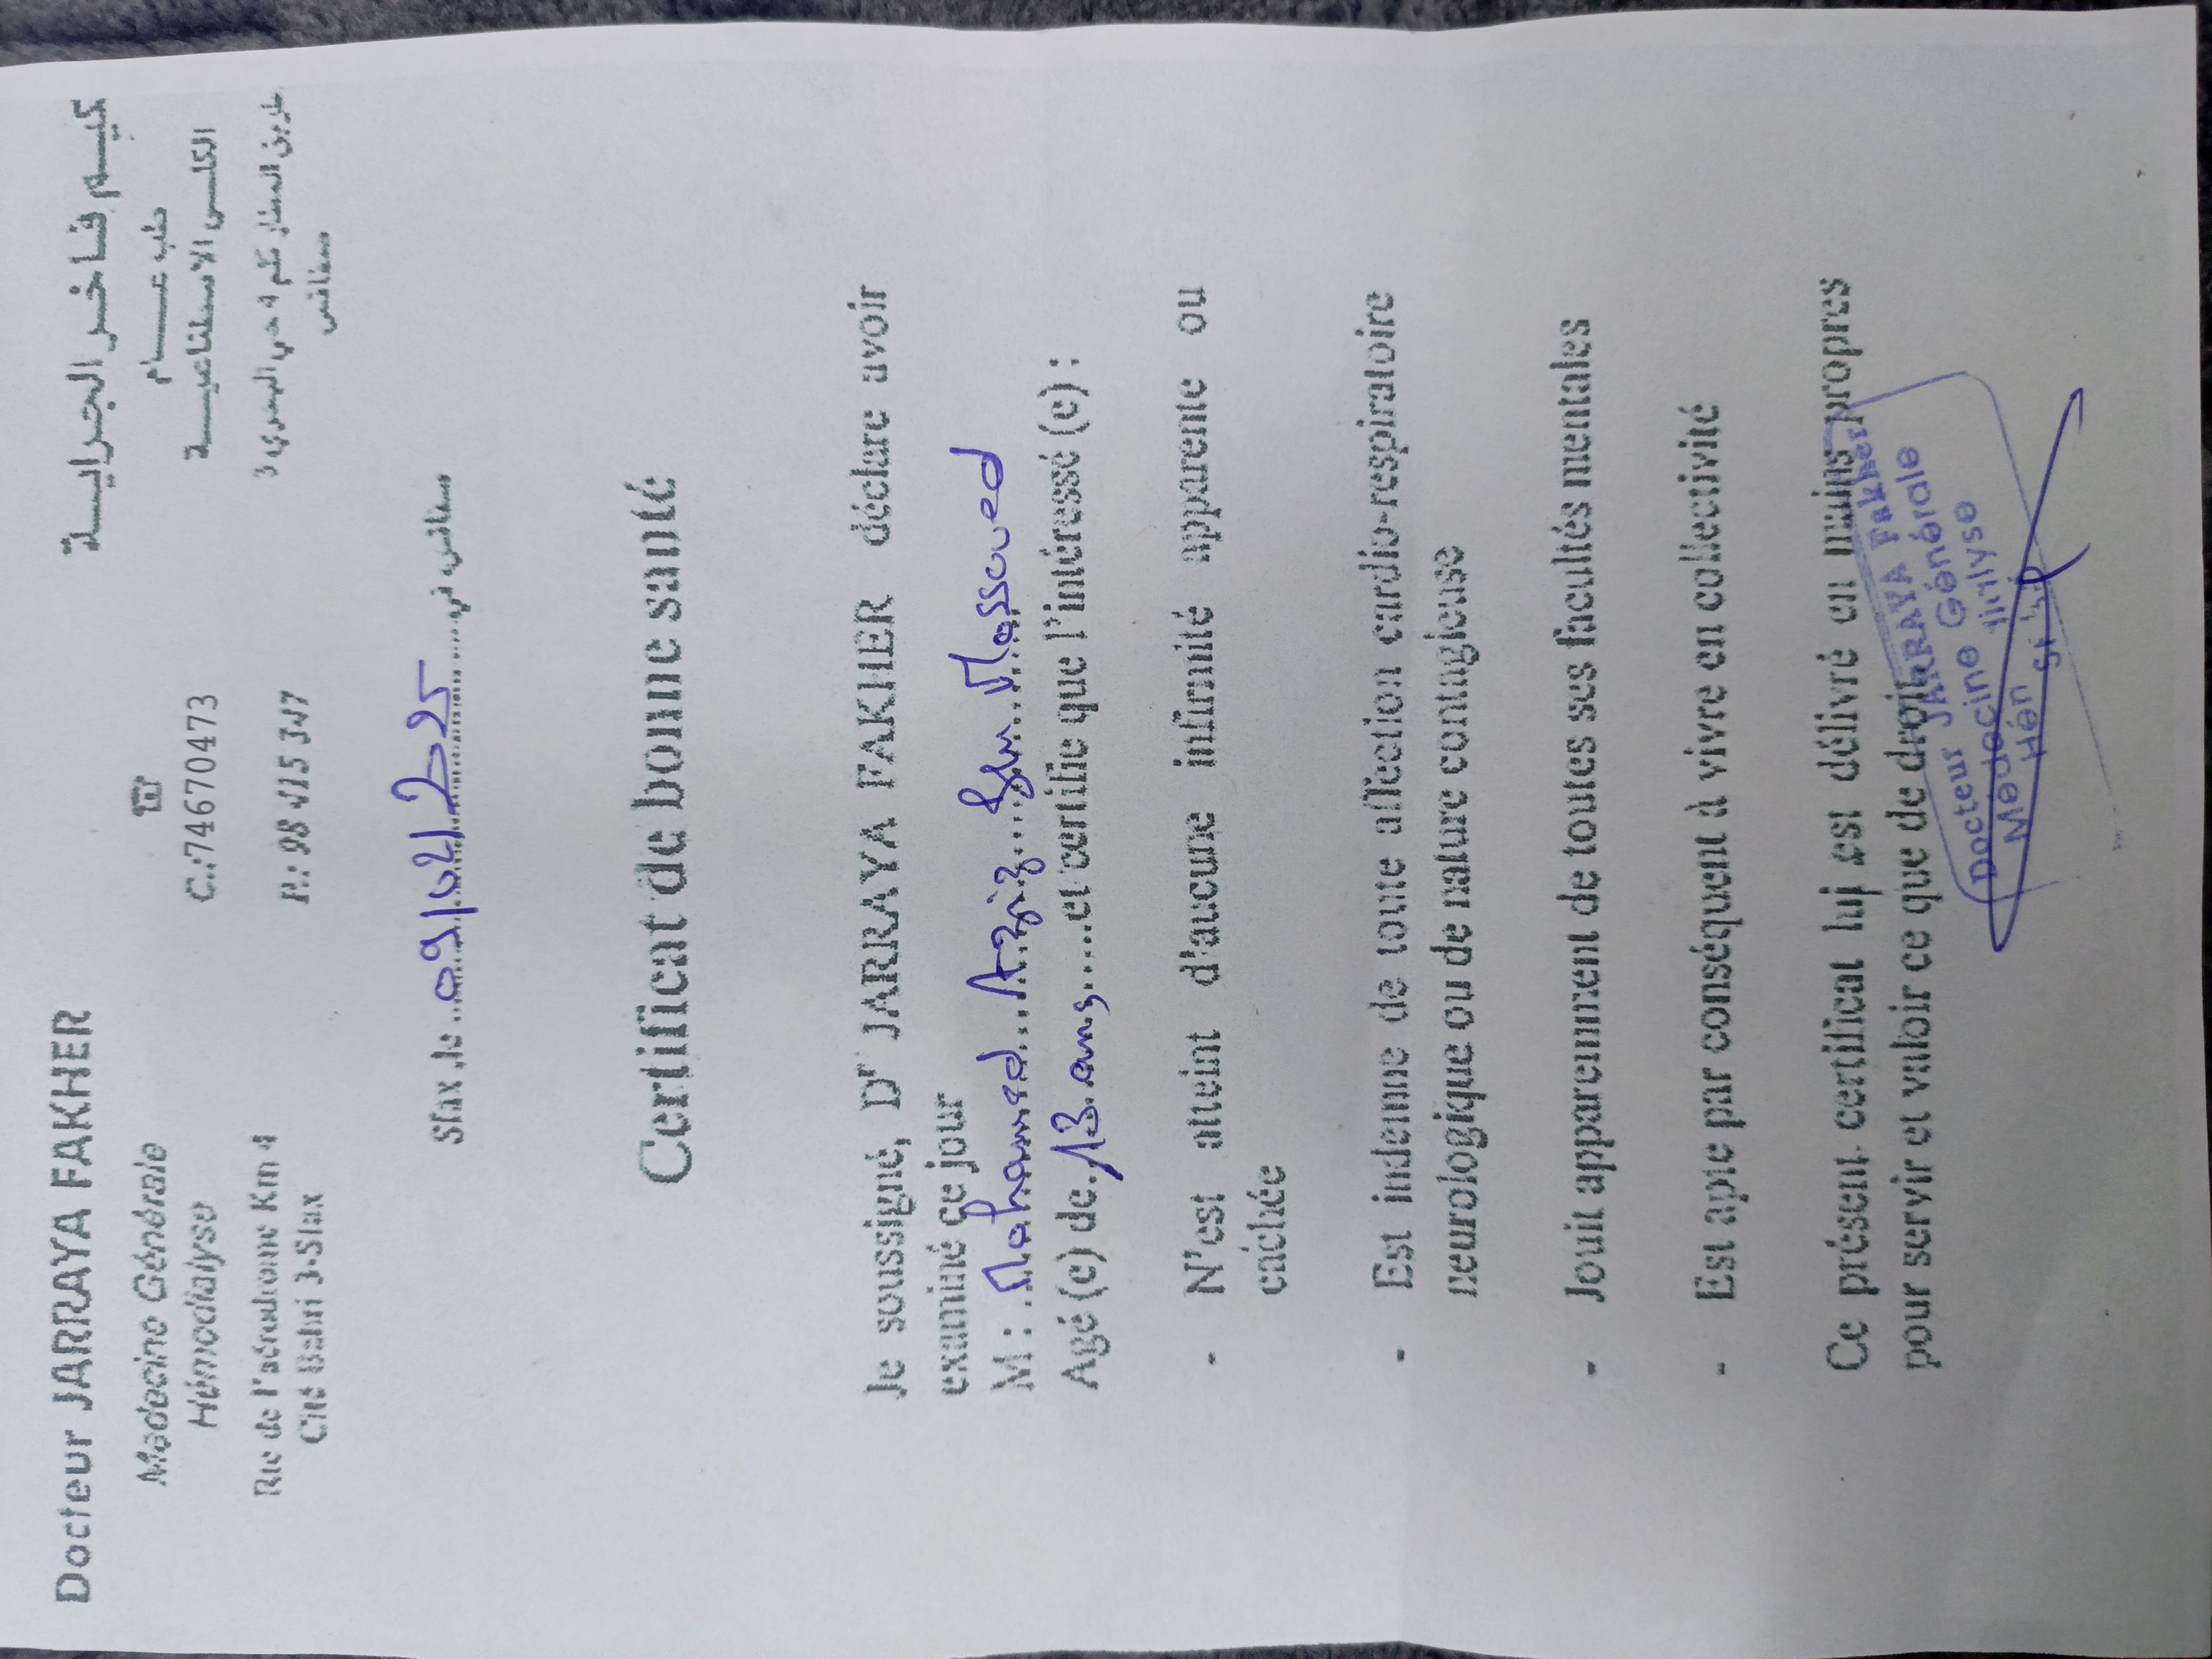 Docteur JARRAYA FAKHER
Médecine Générale
Hémodialyse
Rte de l'aérodrome Km 4
Cité Bahri 3-Sfax
☎
C.:74670473
P.: 98 415 347
فاخر الجرايـــة
طب عـــــام
الكلـــى الاصطناعيـــة
طريق المطار كلم 4 حي البحري 3
صفاقس
Sfax ,le .. 09/02/2025 ........ صفاقس في
Certificat de bonne santé
Je soussigné, Dr JARRAYA FAKHER déclare avoir
examiné ce jour
M : Mohamed Aziz Ben Massoued
Agé (e) de 13 ans .....et certifie que l'intéressé (e) :
- N'est atteint d'aucune infirmité apparente ou
cachée
- Est indemne de toute affection cardio-respiratoire
neurologique ou de nature contagieuse
- Jouit apparemment de toutes ses facultés mentales
- Est apte par conséquent à vivre en collectivité
Ce présent certificat lui est délivré en mains propres
pour servir et valoir ce que de droit
Docteur JARRAYA Fakher
Médecine Générale